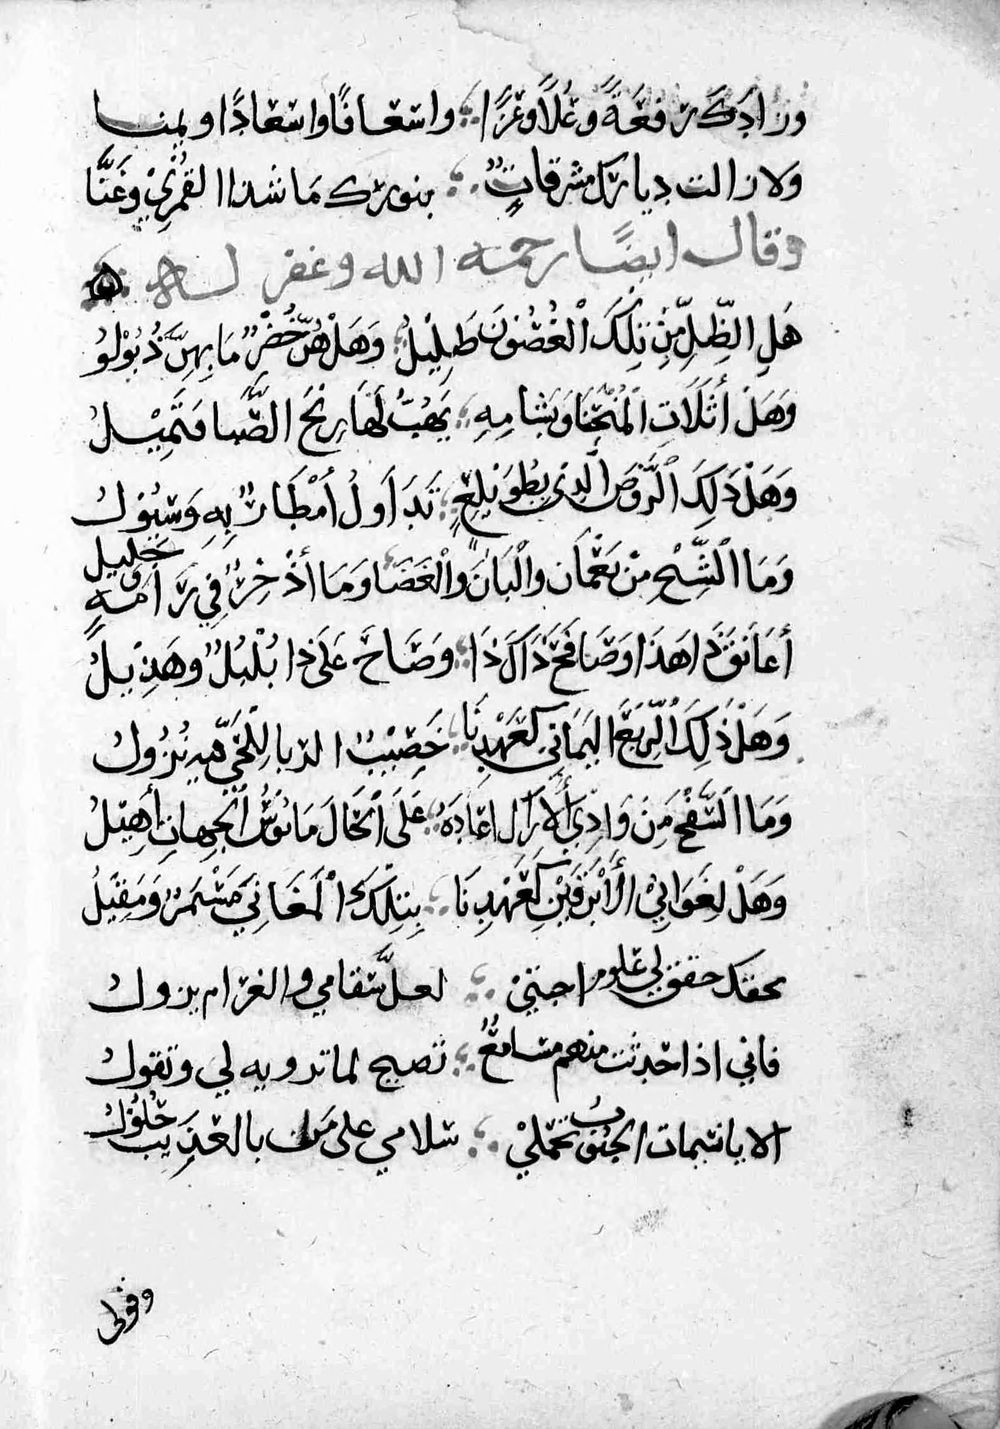 وزادك رفعةً وعُلاً وعزًّا ؛ واسعافًا واسعادًا ويمنا
ولا زالت ديارك مشرقاتٍ ؛ بنورك ما شدا القُمْرِيْ وغَنَّا
وقال ايضًا رحمه الله وغفر له
هَلِ الظِّلِّ مِنْ تِلْكَ الْغُصُوْنَ ظَلِيْلُ ؛ وَهَلْ هُنَّ خُضْرٌ مَا بِهِنَّ ذُبُوْلُو
وَهَلْ أَثَلَاتِ الْمُنْحَنَا وَبَشَامِهِ ؛ يَهُبُّ لَهَا رِيْحَ الصَّبَا فَتَمِيْلُ
وَهَلْ ذَلِكَ الرَّوْضَ الَّذِي بِطُوَيْلِعٍ ؛ تَدَاوَلُ أَمْطَارٌ بِهِ وَسُيُوْلُ
وَمَا الشِّيْحِ مِنْ نَعْمَانَ وَالْبَانَ وَالْغَضَا وَمَا أذْخِرٌ فِي رَامَةٍ وجليل
أعَانَقَ ذَا هَذَا وَصَافَحَ ذَاكَ ذَا ؛ وَصَاحَ عَلَى ذَا بُلْبُلٌ وهَدِيلُ
وَهَلْ ذَلِكَ الرَّبَعَ الْيَمَانِي كَعَهْدِنَا ؛ خَصِيْبُ الربا لِلْحَيِّ فيه نُزُولُ
وَمَا السَّفْحُ مِنْ وَادِي الأراك اعَادَهُ ؛ عَلَى الْحَالَ مَانُوْسُ الْجِهَاتِ أَهِيْلُ
وَهَلْ لِغَوَانِيْ الأَبْرَقَيْنِ كَعَهْدِنَا ؛ بِتِلْكَ الْمَغَانِي مَسْمَرٌ وَمَقِيْلُ
بحقك حقق لي علوم احبتي ؛ لعلَّ سقامي والغرام يزول
فاني اذا حدثت منهم مسامعٌ ؛ تصيح لما ترويه لي وتقول
الا يا نسيمات الجنوب تحملي ؛ سلامي على من بالعذيب حُلُوْلُ
وقولي